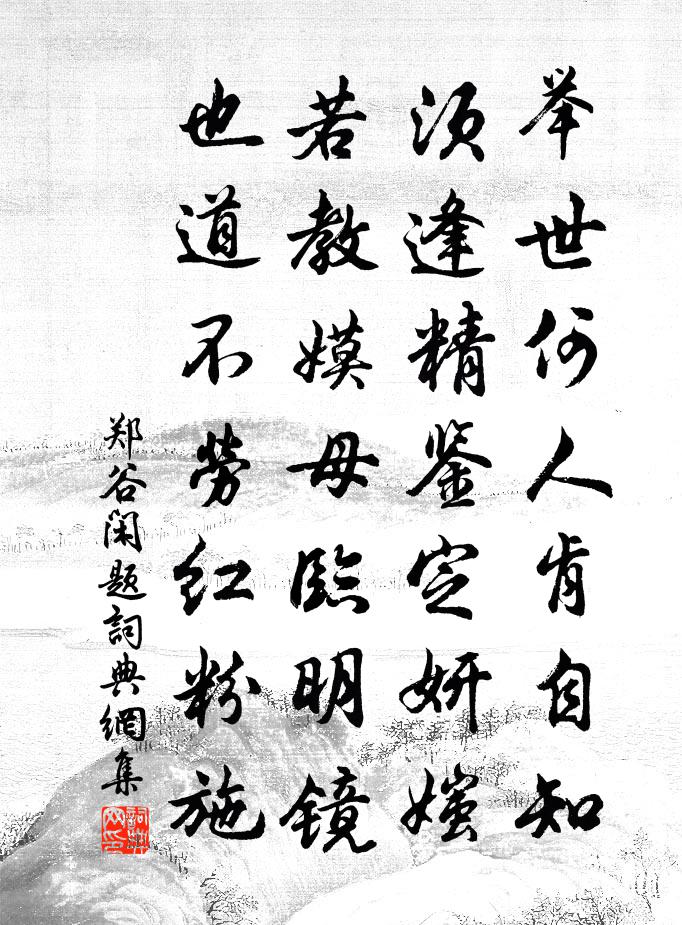 举世何人肯自知
须逢精鉴定妍媸
若教嫫母临明镜
也道不劳红粉施
郑谷闲题词典網集
词典网印